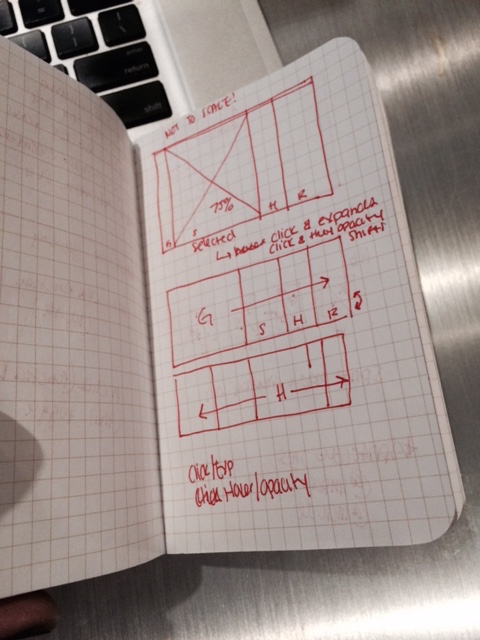 return
shift
NOT TO SCALE!
S
75%
H
R
selected
↳ click & expands
click & opacity
shift
G
S
H
R
H
Click/Exp
Hover/opacity